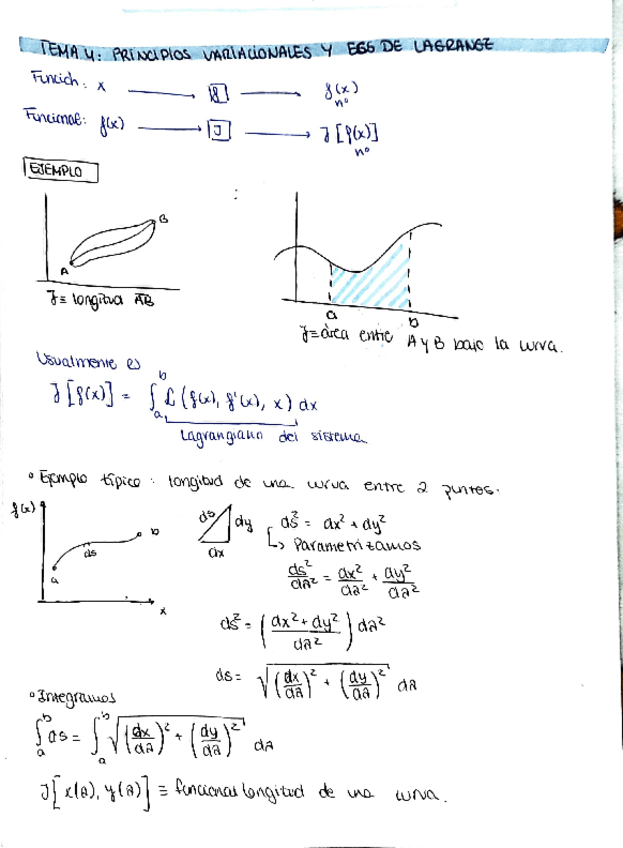 TEMA 4: PRINCIPIOS VARIACIONALES Y EGS DE LAGRANGE
Función: x → f → f(x)
nº
Funcional: f(x) → J → J[f(x)]
nº
EJEMPLO
:
A B
J ≡ longitud AB
a b
J ≡ área entre A y B bajo la curva.
Usualmente es
J[f(x)] = ∫_a^b L(f(x), f'(x), x) dx
Lagrangiano del sistema
° Ejemplo típico: longitud de una curva entre 2 puntos.
f(x)
a ds b
x
ds dy
dx
ds² = dx² + dy²
↳ Parametrizamos
ds²/dλ² = dx²/dλ² + dy²/dλ²
ds² = ((dx² + dy²)/dλ²) dλ²
ds = √((dx/dλ)² + (dy/dλ)²) dλ
° Integramos
∫_a^b ds = ∫_a^b √((dx/dλ)² + (dy/dλ)²) dλ
J[x(λ), y(λ)] ≡ funcional longitud de una curva.